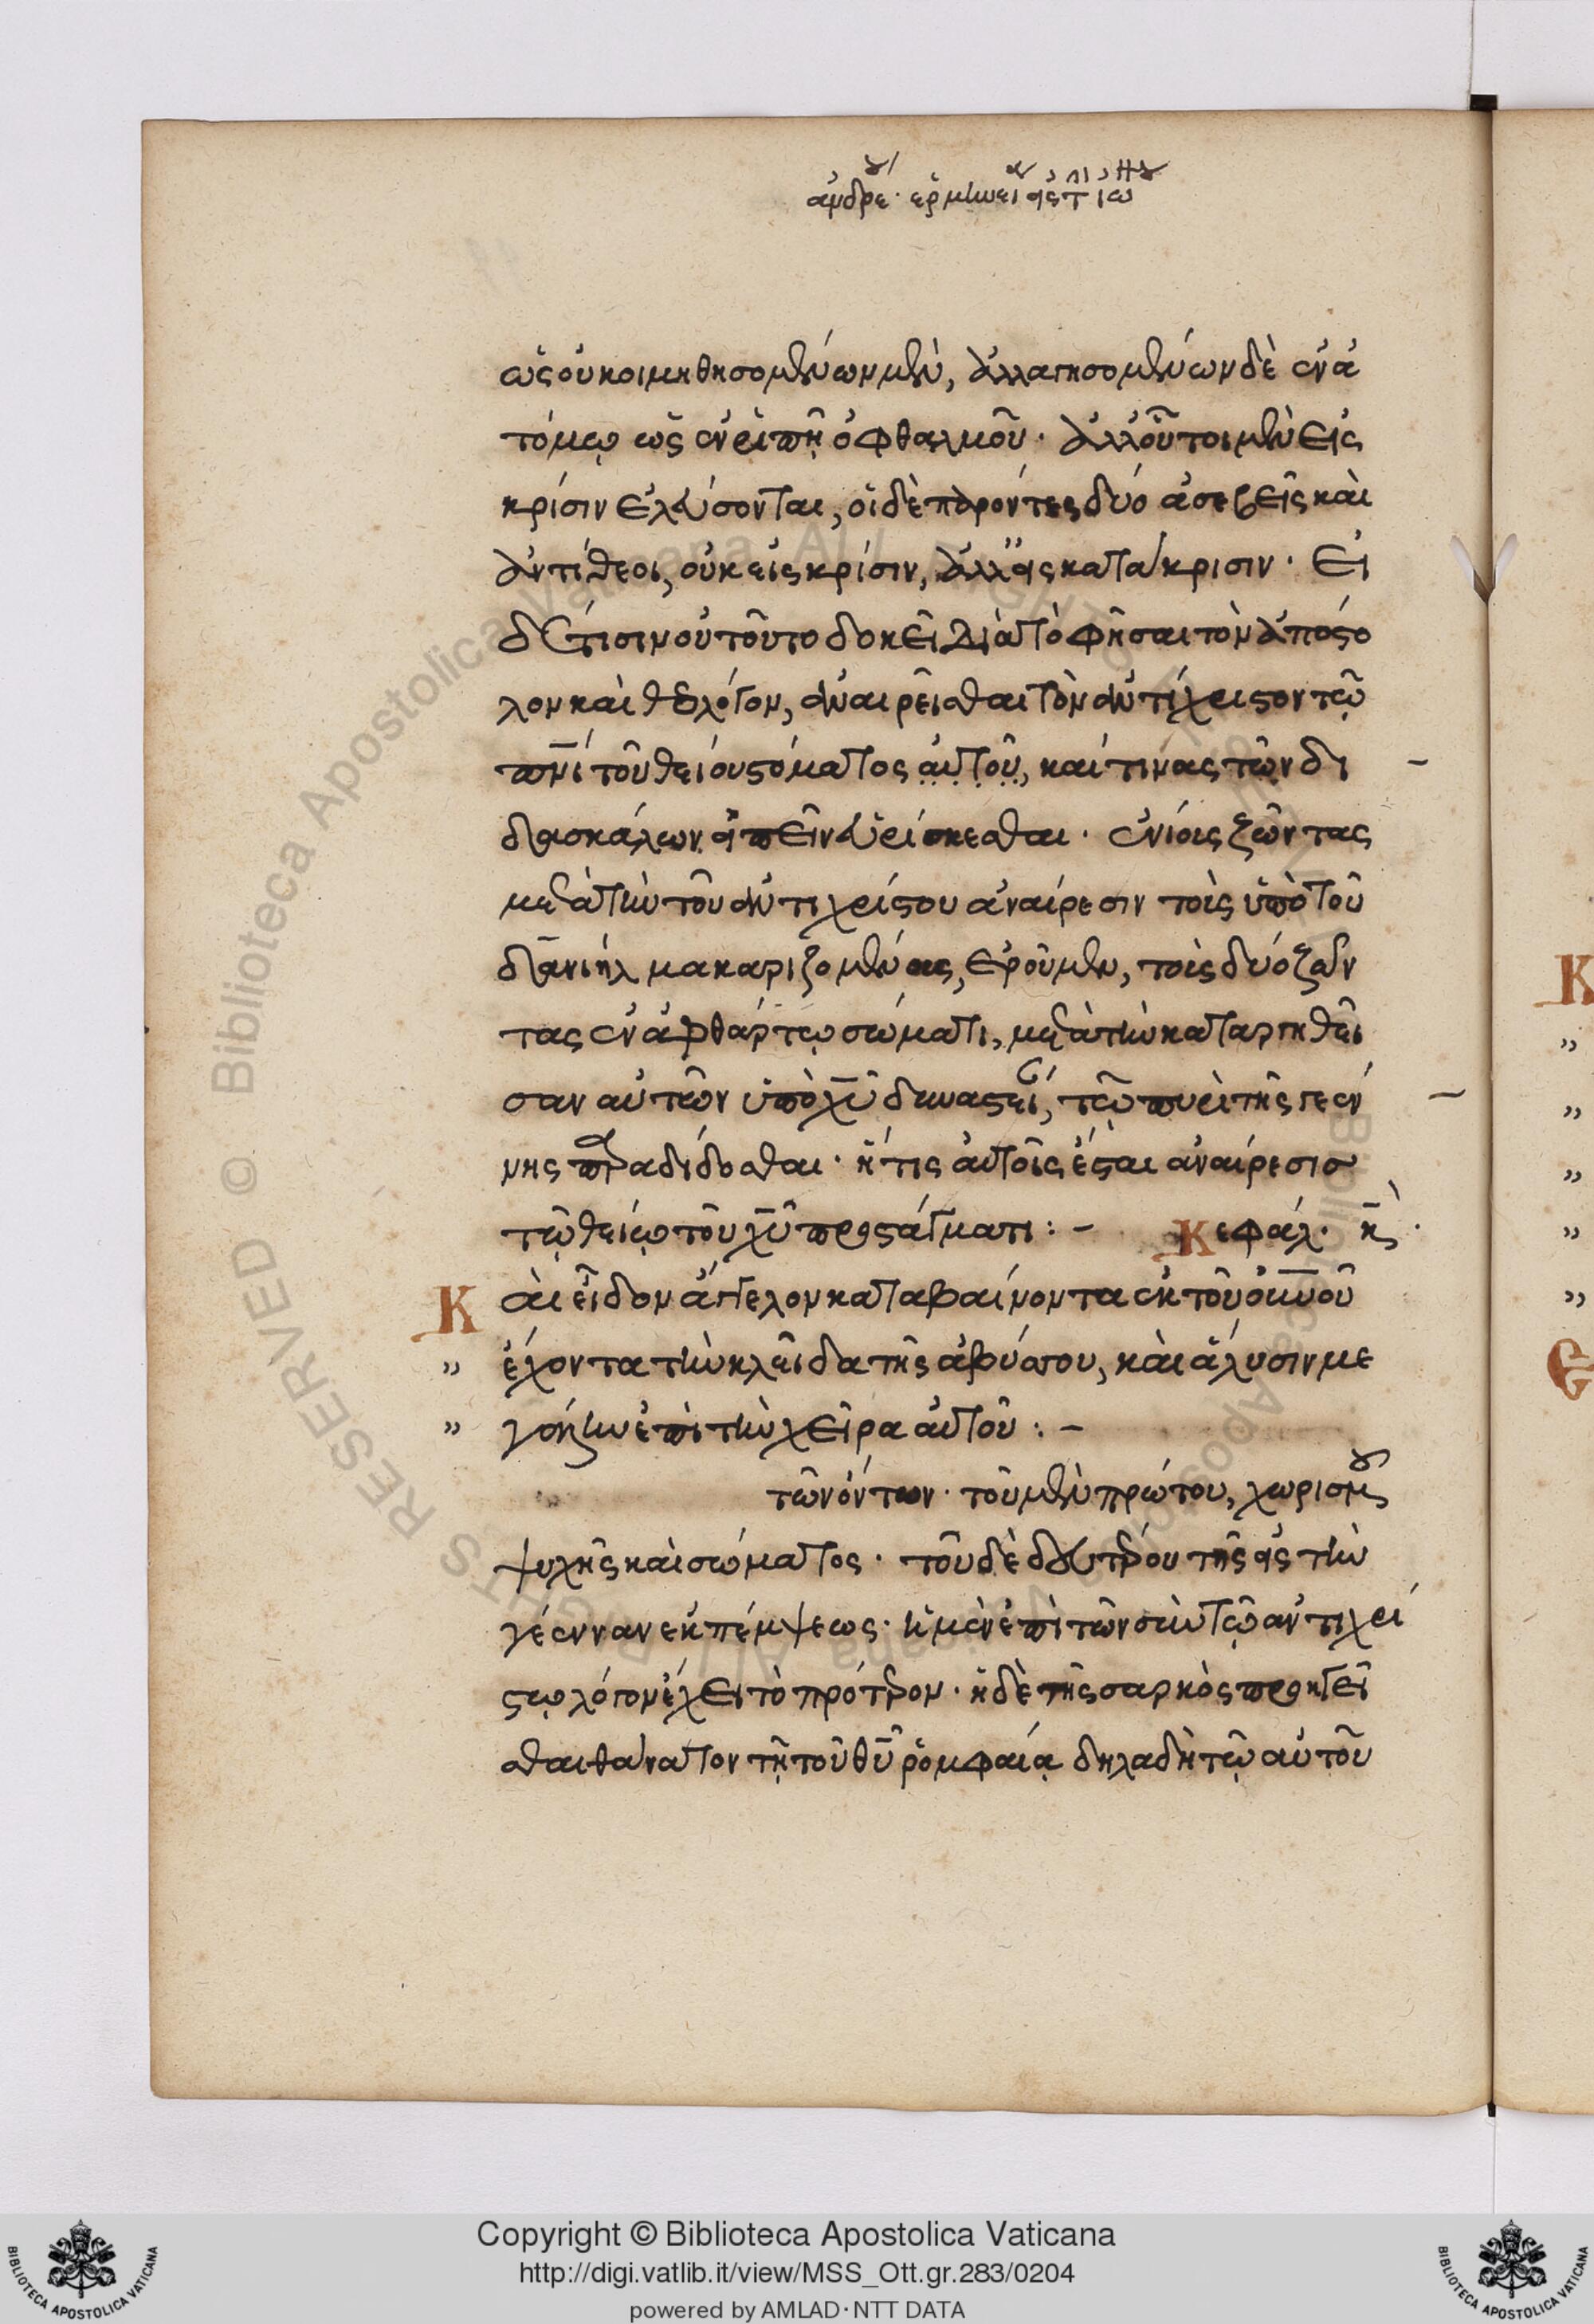 ἀνδρέου· ἑρμηνεία εἰς τὴν
ὡς οὐ κοιμηθησομένων μὲν, ἀλλαγησομένων δὲ ἐν ἀ
τόμῳ ὡς ἐν ῥιπῇ ὀφθαλμοῦ· ἀλλ' οὗτοι μὲν εἰς
κρίσιν ἐλεύσονται, οἱ δὲ παρόντες δύο ἀσεβεῖς καὶ
ἀντίθεοι, οὐκ εἰς κρίσιν, ἀλλ' εἰς κατάκρισιν· Εἰ
δέ τισιν οὐ τοῦτο δοκεῖ διὰ τὸ φῆσαι τὸν ἀπόστο
λον καὶ θεολόγον, ἀναιρεῖσθαι τὸν ἀντίχριστον τῷ
πνι τοῦ θείου στόματος αὐτοῦ, καί τινας τῶν δι
δασκάλων εἰπεῖν εὑρίσκεσθαι· ἐνίοις ζῶντας
μετὰ τὴν τοῦ ἀντιχρίστου ἀναίρεσιν τοῖς ὑπὸ τοῦ
δανιὴλ μακαριζομένοις, ἐροῦμεν, τοῖς δύο ζῶν
τας ἐν ἀφθάρτῳ σώματι, μετὰ τὴν καταργηθεῖ
σαν αὐτῶν ὑπὸ χῦ δυναστεί, τῷ πυρὶ τῆς γεέν
νης παραδίδοσθαι· ἥτις αὐτοῖς ἔσται ἀναίρεσις
τῷ θείῳ τοῦ χῦ προστάγματι :– Κεφάλ. ξ·
Καὶ εἶδον ἄγγελον καταβαίνοντα ἐκ τοῦ οὐνοῦ
" ἔχοντα τὴν κλεῖδα τῆς ἀβύσσου, καὶ ἅλυσιν με
" γάλην ἐπὶ τὴν χεῖρα αὐτοῦ :–
τῶν ὄντων· τοῦ μὲν πρώτου, χωρισμοῦ
ψυχῆς καὶ σώματος· τοῦ δὲ δευτέρου τῆς εἰς τὴν
γέενναν ἐκπέμψεως· ἡ μὲν ἐπὶ τῶν σὺν τῷ ἀντιχρί
στῳ λόγον ἔχει τὸ πρότερον· ἡ δὲ τῆς σαρκὸς προηγεῖ
σθαι θάνατον τῇ τοῦ θῦ ῥομφαίᾳ δηλαδὴ τῷ αὐτοῦ
Κ
"
"
"
"
"
Ε
Copyright © Biblioteca Apostolica Vaticana
http://digi.vatlib.it/view/MSS_Ott.gr.283/0204
powered by AMLAD·NTT DATA
BIBLIOTECA APOSTOLICA VATICANA
BIBLIOTECA APOSTOLICA VATICANA